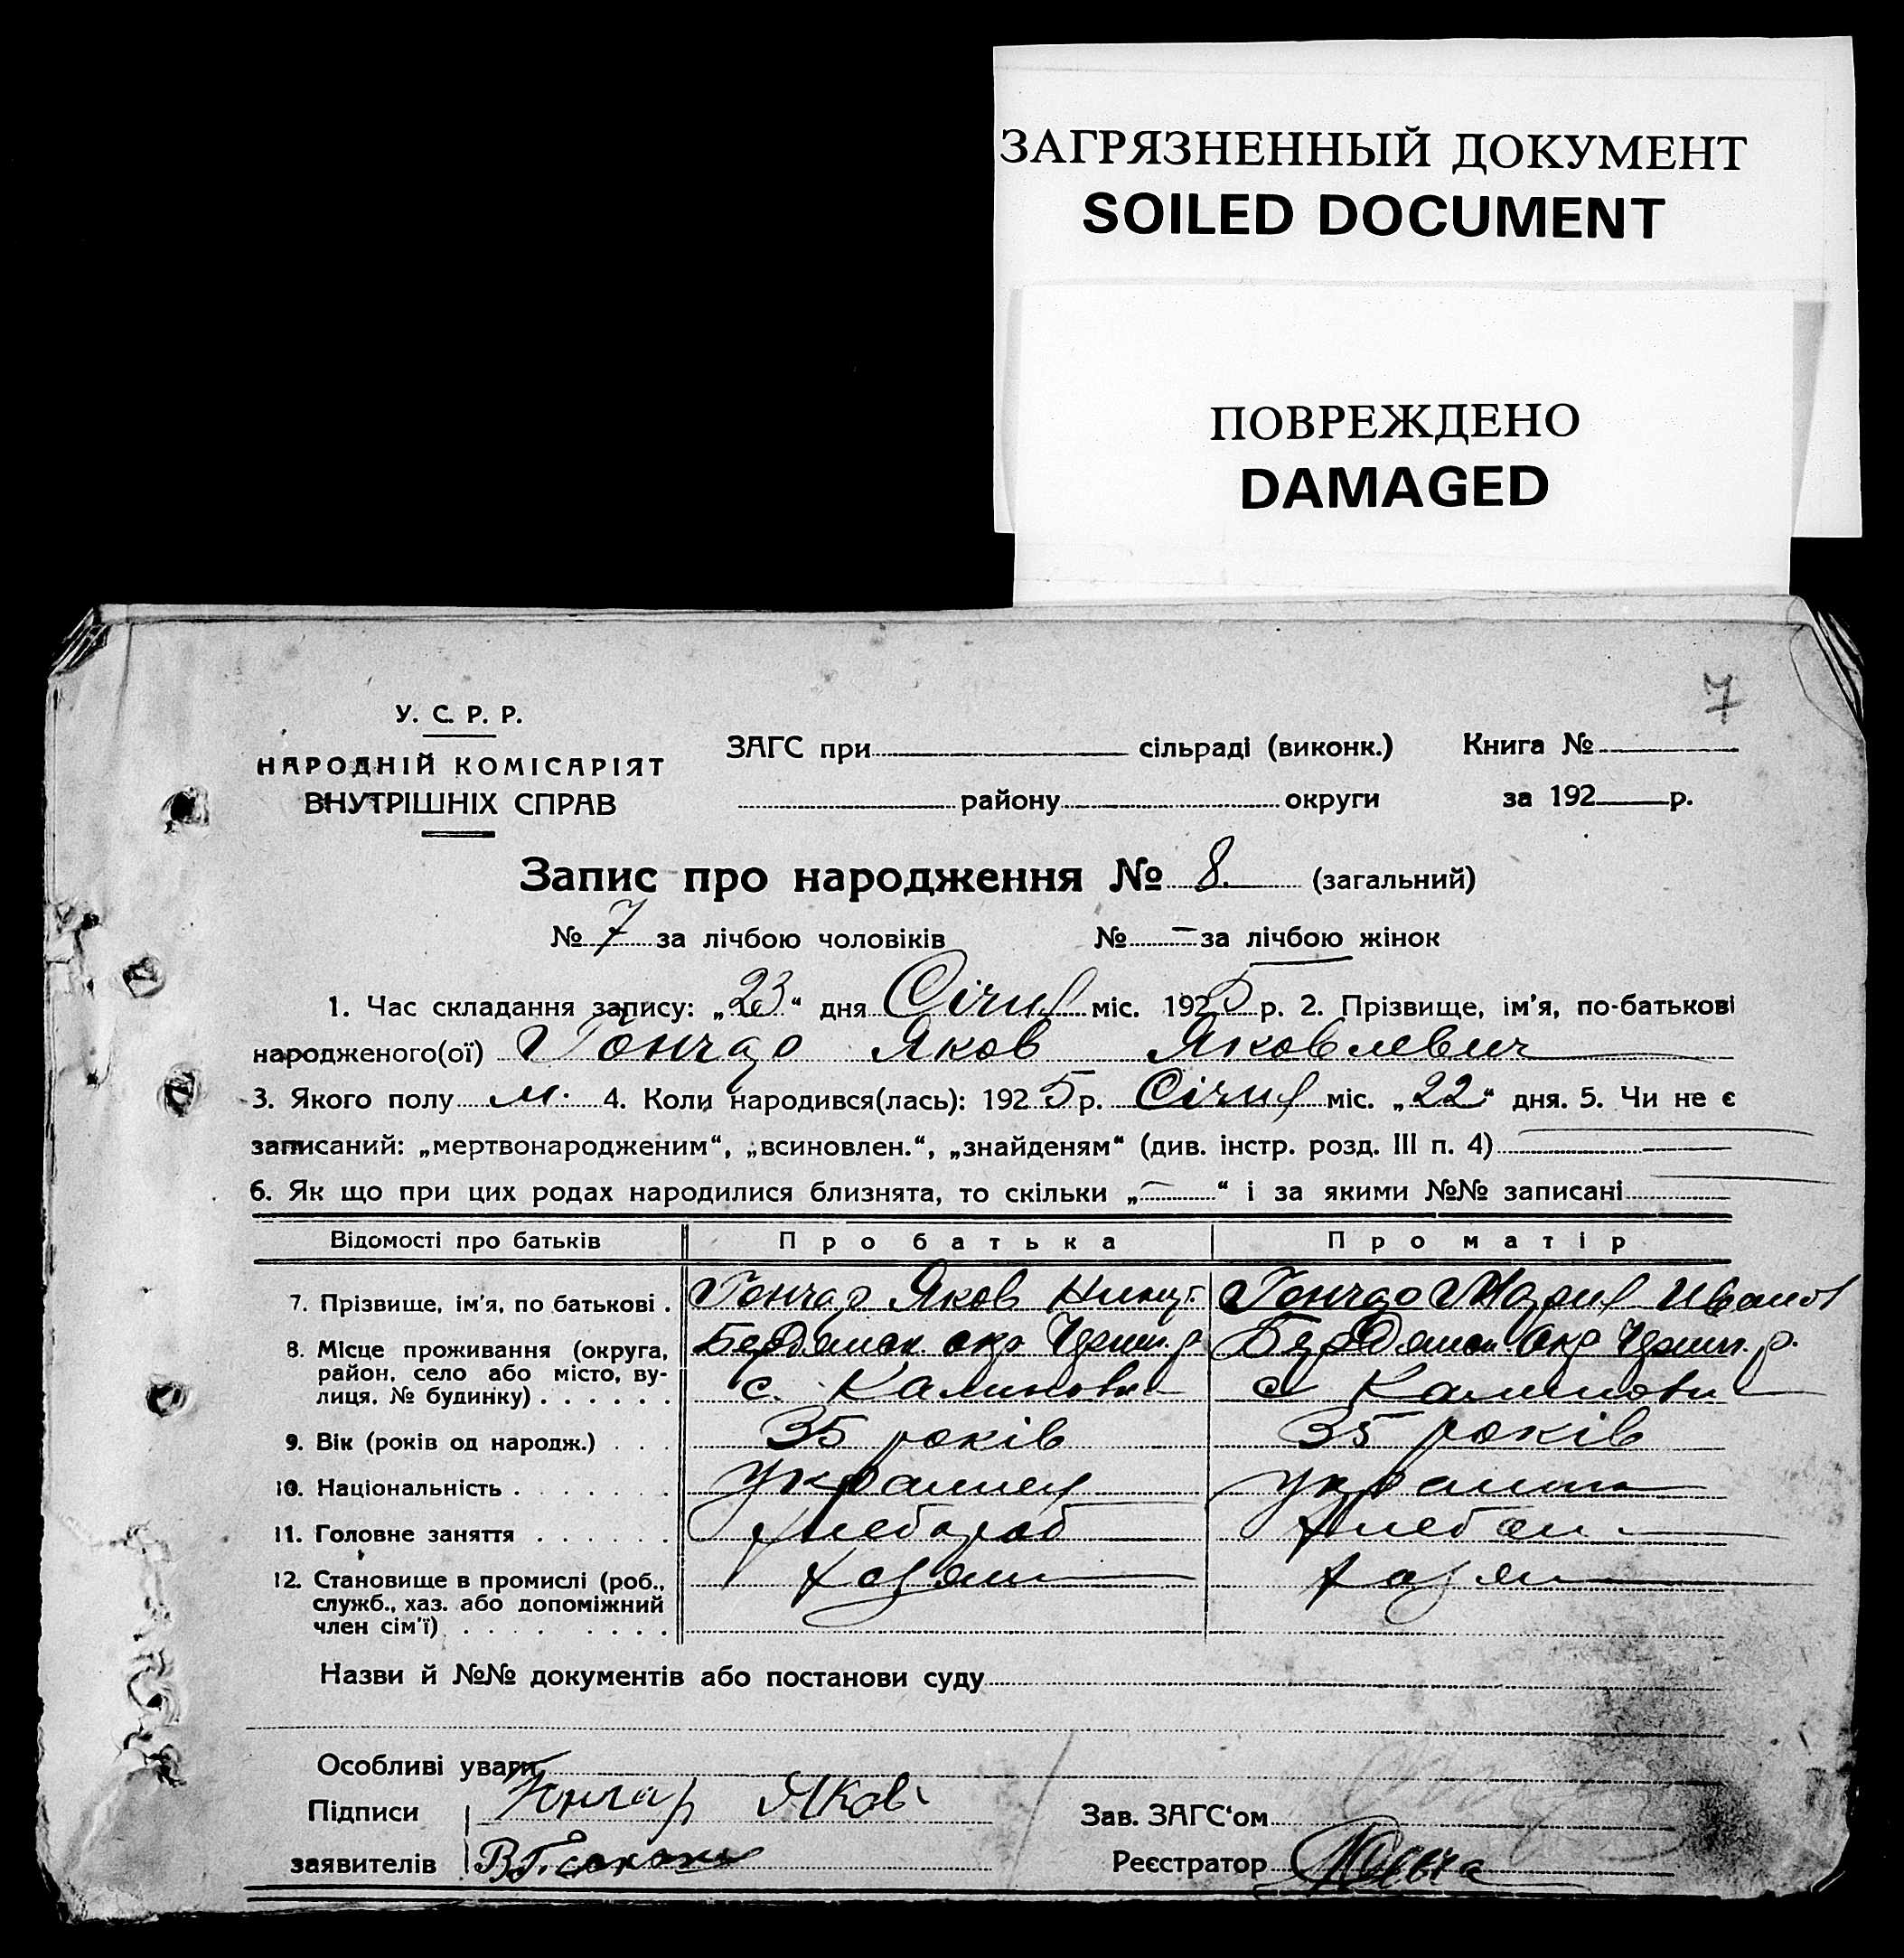 ЗАГРЯЗНЕННЫЙ ДОКУМЕНТ
SOILED DOCUMENT
ПОВРЕЖДЕНО
DAMAGED
7
У. С. Р. Р.
НАРОДНІЙ КОМІСАРІЯТ
ВНУТРІШНІХ СПРАВ
ЗАГС при сільраді (виконк.) Книга №
району округи за 192 р.
Запис про народження № 8 (загальний)
№ 7 за лічбою чоловіків № – за лічбою жінок
1. Час складання запису: „23“ дня Січня міс. 1925 р. 2. Прізвище, ім'я, по-батькові
народженого(ої) Гончар Яков Яковлевич
3. Якого полу м. 4. Коли народився(лась): 1925 р. Січня міс. „22“ дня. 5. Чи не є
записаний: „мертвонародженим“, „всиновлен.“, „знайденям“ (див. інстр. розд. III п. 4)
6. Як що при цих родах народилися близнята, то скільки „—“ і за якими №№ записані
Відомості про батьків Про батька Про матір
7. Прізвище, ім'я, по батькові . Гончар Яков Никит Гончар Мария Иванов
8. Місце проживання (округа, Бердянск окр Черниг. р. Бердянск окр Черниг. р.
район, село або місто, ву-
лиця, № будинку) . . . . . . с. Калиновк с Калиновк
9. Вік (років од народж.) . . . 35 років 35 років
10. Національність . . . . . . . украинец украинк
11. Головне заняття . . . . . . хлебороб
12. Становище в промислі (роб.,
служб., хаз. або допоміжний
член сім'ї) . . . . . . . .
Назви й №№ документів або постанови суду
Особливі уваги
Підписи Гончар Яков
Зав. ЗАГС‘ом
заявителів
Реєстратор